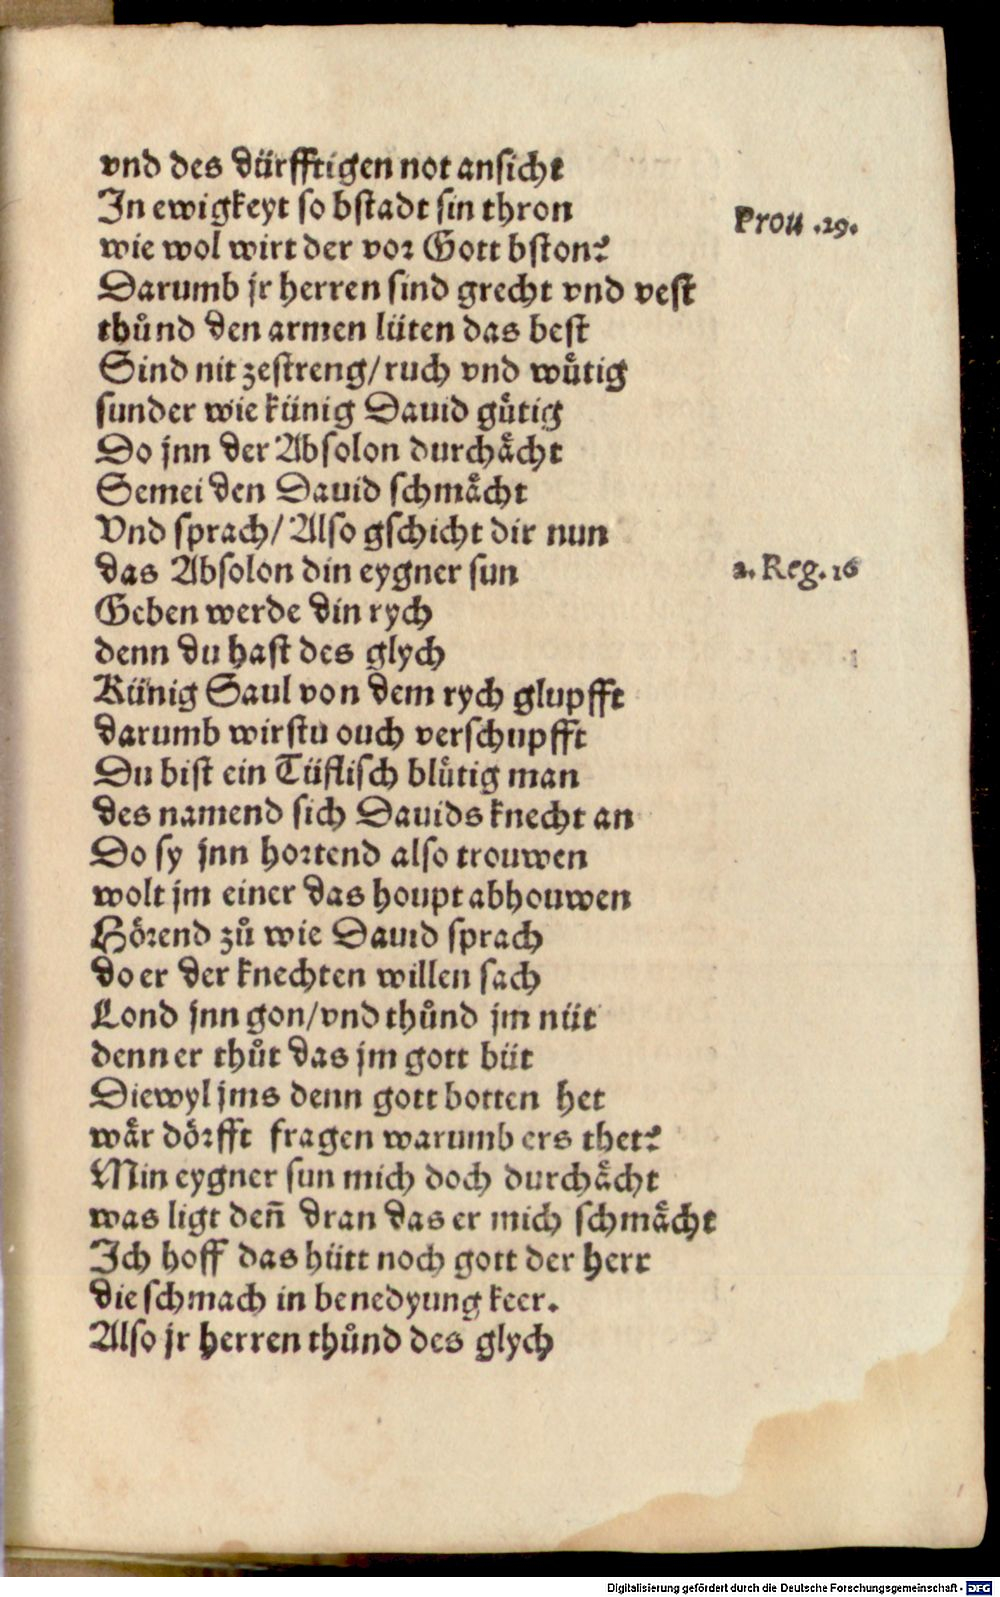 vnd des dürfftigen not ansicht
In ewigkeyt so bstadt sin thron
Prou .29.
wie wol wirt der vor Gott bston?
Darumb jr herren sind grecht vnd vest
thuͦnd den armen lüten das best
Sind nit zestreng/ruch vnd wuͤtig
sunder wie künig Dauid guͤtig
Do jnn der Absolon durchaͤcht
Semei den Dauid schmaͤcht
Vnd sprach/Also gschicht dir nun
das Absolon din eygner sun
2. Reg. 16
Geben werde din rych
denn du hast des glych
Künig Saul von dem rych glupfft
darumb wirstu ouch verschupfft
Du bist ein Tüflisch bluͤtig man
des namend sich Dauids knecht an
Do sy jnn hortend also trouwen
wolt jm einer das houpt abhouwen
Hoͤrend zuͦ wie Dauid sprach
do er der knechten willen sach
Lond jnn gon/vnd thuͦnd jm nüt
denn er thuͦt das jm gott büt
Diewyl jms denn gott botten het
waͤr doͤrfft fragen warumb ers thet?
Min eygner sun mich doch durchaͤcht
was ligt den̄ dran das er mich schmaͤcht
Ich hoff das hütt noch gott der herr
die schmach in benedyung keer.
Also jr herren thuͦnd des glych
Digitalisierung gefördert durch die Deutsche Forschungsgemeinschaft - DFG